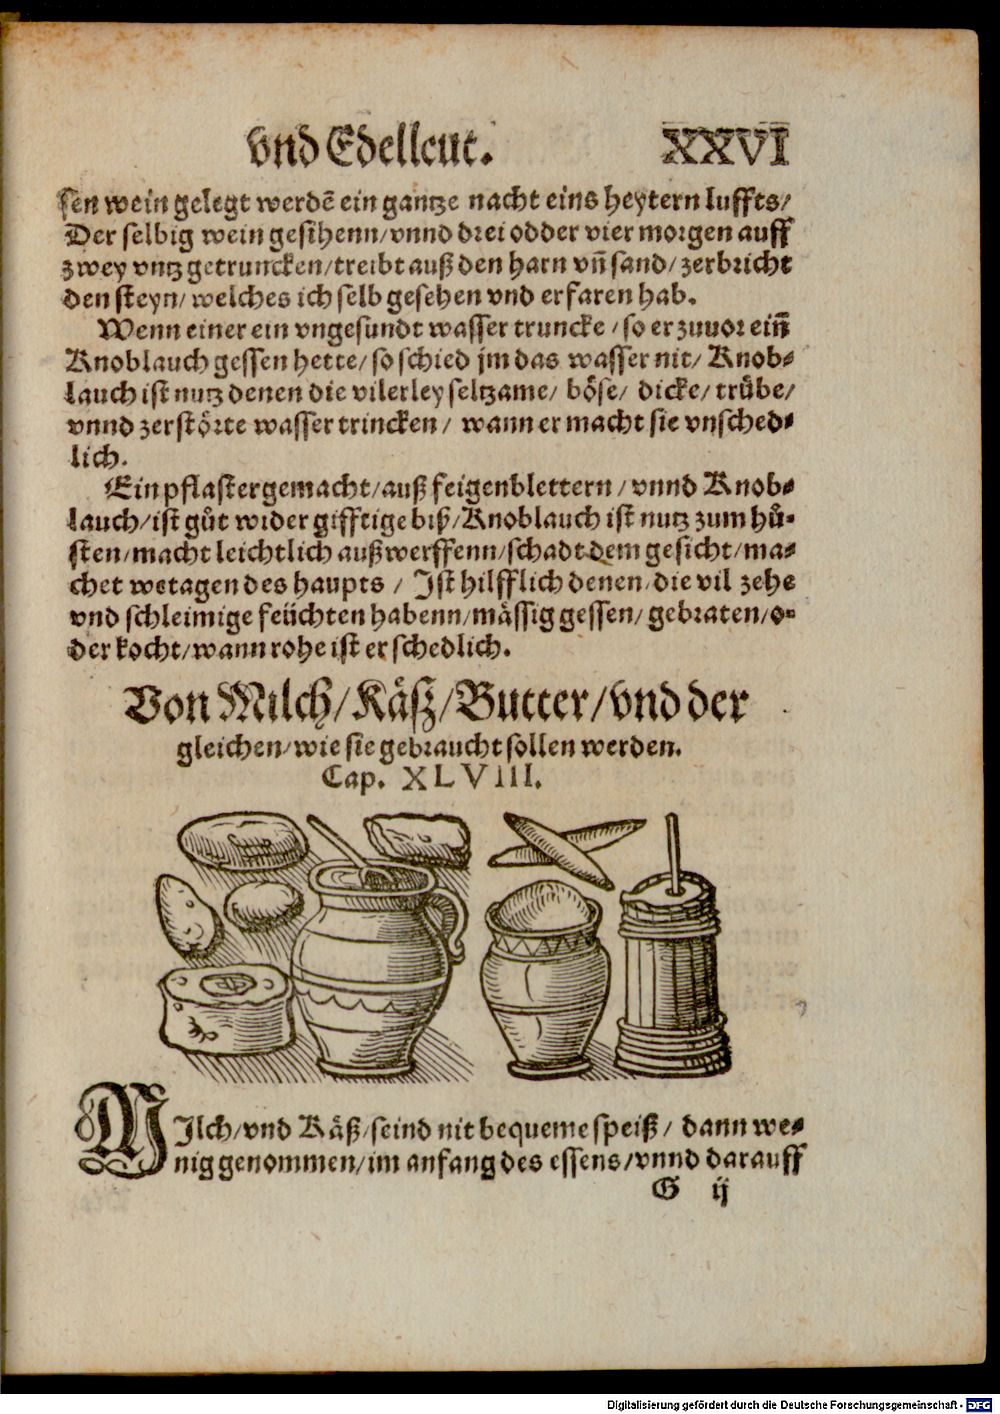 vnd Edelleut. XXVI
sen wein gelegt werdẽ ein gantze nacht eins heytern luffts/
Der selbig wein gesihenn/vnnd drei odder vier morgen auff
zwey vntz getruncken/treibt auß den harn vñ sand/zerbricht
den steyn/welches ich selb gesehen vnd erfaren hab.
Wenn einer ein vngesundt wasser truncke/so er zuuor eiñ
Knoblauch gessen hette/so schied jm das wasser nit/Knob-
lauch ist nutz denen die vilerley seltzame/böse/dicke/trübe/
vnnd zerstörte wasser trincken/wann er macht sie vnsched-
lich.
Ein pflaster gemacht/auß feigenblettern/vnnd Knob-
lauch/ist gůt wider gifftige biß/Knoblauch ist nutz zum hů-
sten/macht leichtlich außwerffenn/schadt dem gesicht/ma-
chet wetagen des haupts/Ist hilfflich denen/die vil zehe
vnd schleimige feüchten habenn/mässig gessen/gebraten/o-
der kocht/wann rohe ist er schedlich.
Von Milch/Käsz/Butter/vnd der
gleichen/wie sie gebraucht sollen werden.
Cap. XLVIII.
MIlch/vnd Käß/seind nit bequeme speiß/dann we-
nig genommen/im anfang des essens/vnnd darauff
G ij
Digitalisierung gefördert durch die Deutsche Forschungsgemeinschaft - DFG